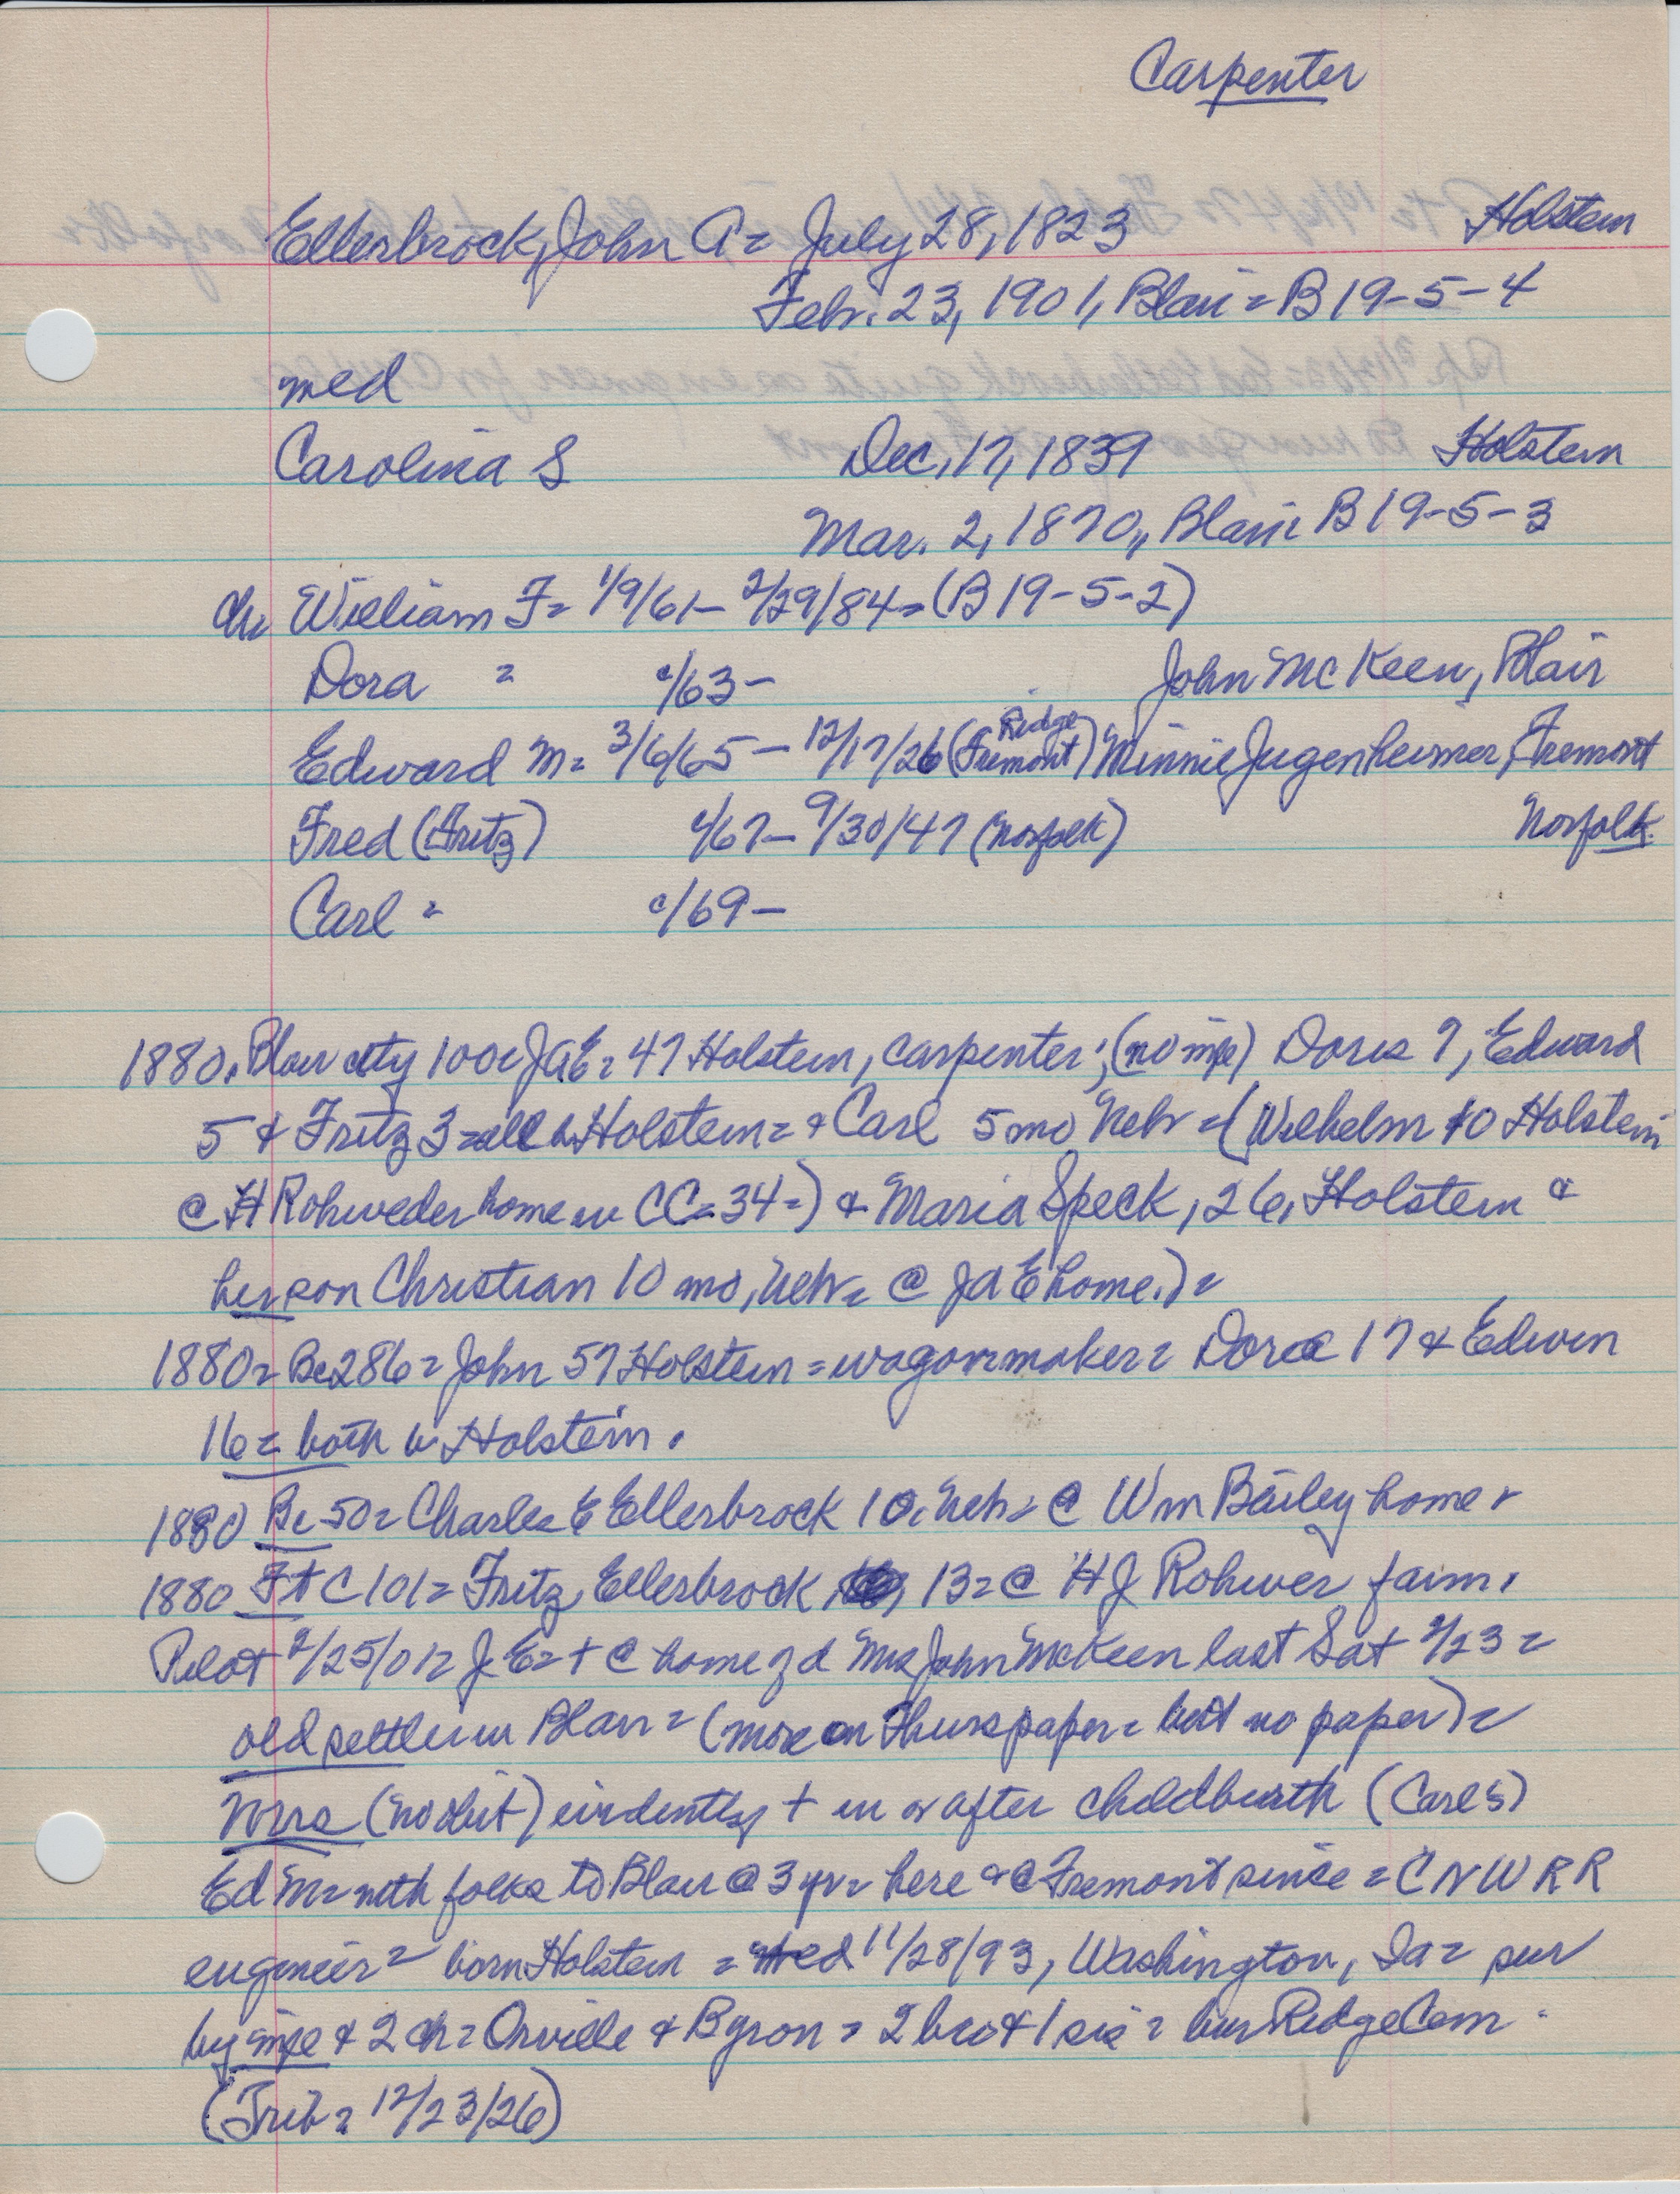 Carpenter
Ellerbrock, John A = July 28, 1823 Holstein
Febr. 23, 1901, Blair = B 19-5-4
med
Carolina S Dec. 17, 1839 Holstein
Mar. 2, 1870,, Blair B 19-5-3
ch= William F= 1/9/61 - 2/29/84 = (B 19-5-2)
Dora = c/63 - John McKeen, Blair
Edward M= 3/6/65 - 12/17/26 (Ridge Fremont) Minnie Jugenheimer, Fremont
Fred (Fritz) c/67 - 9/30/47 (Norfolk) Norfolk
Carl = c/69 -
1880. Blair city 100= JAE= 47 Holstein, carpenter; (no mfe) Dores 7, Edward
5 & Fritz 3 = all b Holstein = & Carl 5 mo Nebr = (Wilhelm 10 Holstein
@ H Rohweder home in CC=34=) & Maria Speck, 26, Holstein &
her son Christian 10 mo, Nebr = @ JAE home.) =
1880= Bc286= John 57 Holstein = wagonmaker = Dora 17 & Edwin
16 = both b Holstein.
1880 Bc 50= Charles E Ellerbrock 10. Nebr = @ Wm Bailey home =
1880 Ft C 101= Fritz Ellerbrock, 13 = @ HJ Rohwer farm.
Pilot 2/25/01= J E = + @ home of d Mrs John McKeen last Sat 2/23 =
old settler in Blair = (more on Thurs paper = but no paper) =
Mrs (no obit) evidently + in or after childbirth (Carl's)
Ed M= with folks to Blair @ 3 yr= here & @ Fremont since = CNWRR
engineer = born Holstein = med 11/28/93, Washington, Ia = sur
by mfe & 2 ch = Orville & Byron = 2 bro & 1 sis = bur Ridge Cem -
(Trib = 12/23/26)